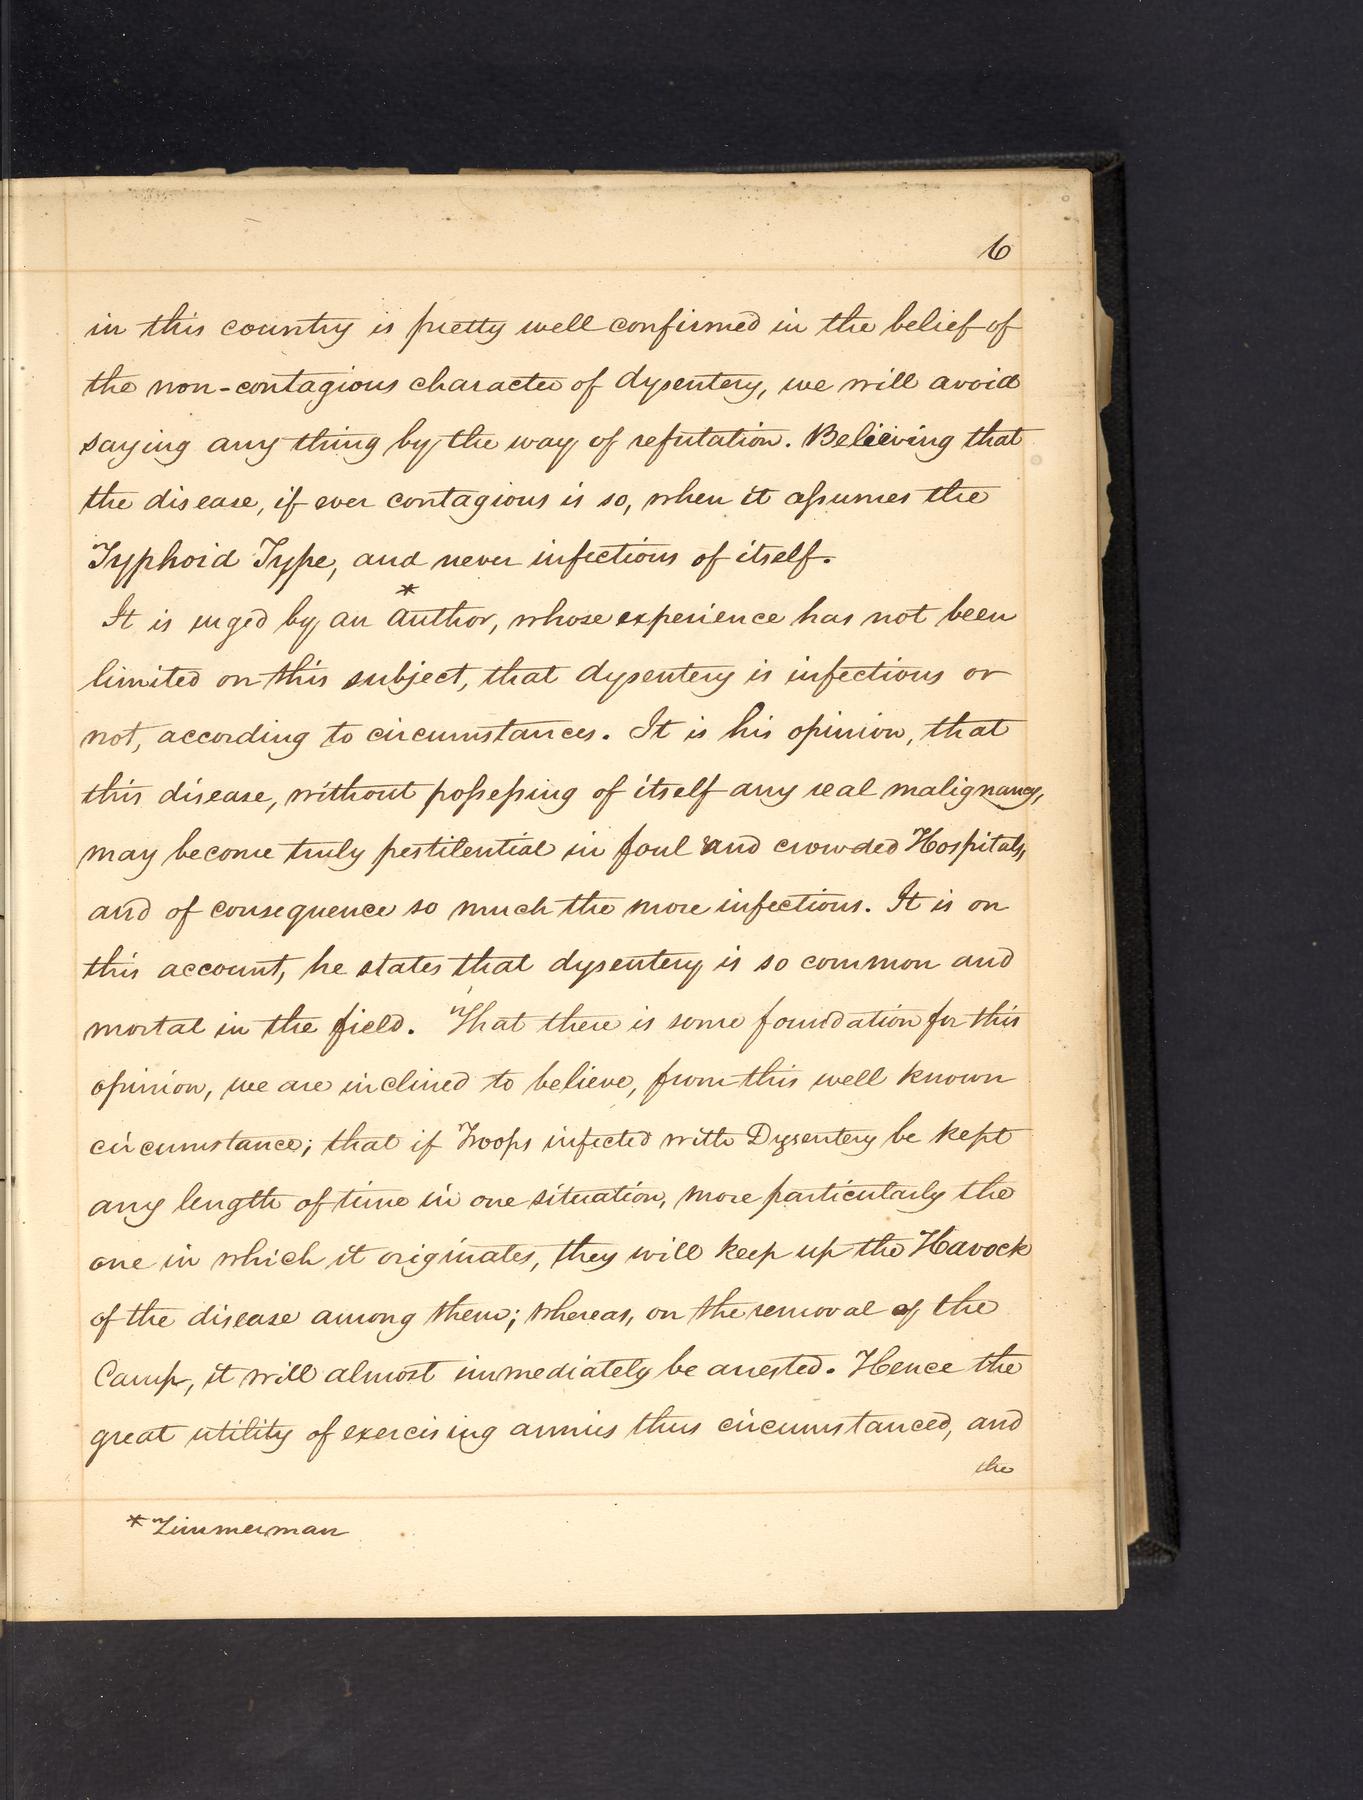 6
in this country is pretty well confirmed in the belief of
the non-contagious character of dysentery, we will avoid
saying any thing by the way of refutation. Believing that
the disease, if ever contagious is so, when it assumes the
Typhoid Type, and never infectious of itself.
It is urged by an *Author, whose experience has not been
limited on this subject, that dysentery is infectious or
not, according to circumstances. It is his opinion, that
this disease, without possessing of itself any real malignancy,
may become truly pestilential in foul and crowded Hospitals,
and of consequence so much the more infectious. It is on
this account, he states that dysentery is so common and
mortal in the field. That there is some foundation for this
opinion, we are inclined to believe, from this well known
circumstance; that if Troops infected with Dysentery be kept
any length of time in one situation, more particularly the
one in which it originates, they will keep up the Havock
of the disease among them; whereas, on the removal of the
Camp, it will almost immediately be arrested. Hence the
great utility of exercising armies thus circumstanced, and
the
* Zimmerman